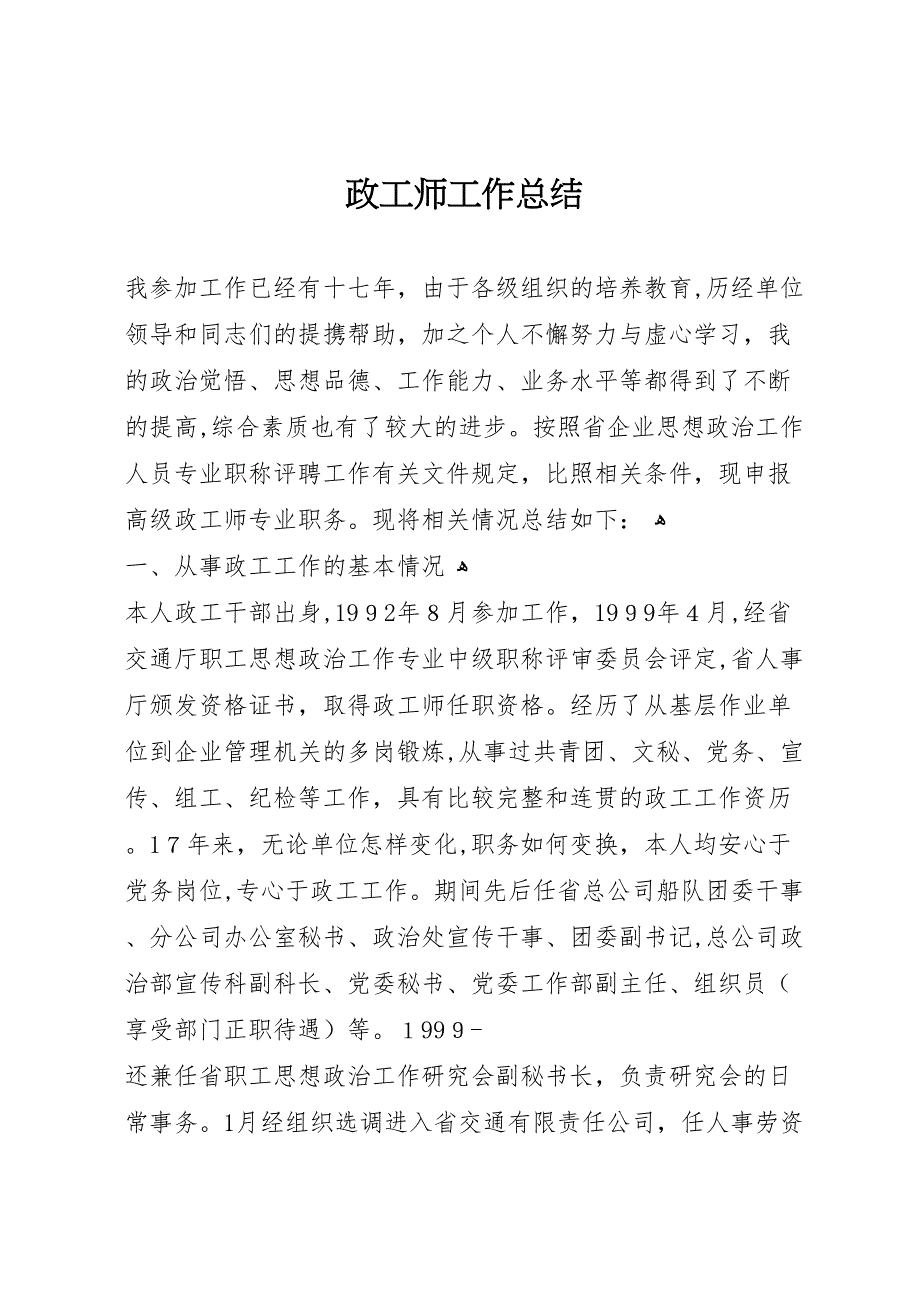 政工师工作总结
我参加工作已经有十七年，由于各级组织的培养教育,历经单位
领导和同志们的提携帮助，加之个人不懈努力与虚心学习，我
的政治觉悟、思想品德、工作能力、业务水平等都得到了不断
的提高,综合素质也有了较大的进步。按照省企业思想政治工作
人员专业职称评聘工作有关文件规定，比照相关条件，现申报
高级政工师专业职务。现将相关情况总结如下： ﻫ
一、从事政工工作的基本情况 ﻫ
本人政工干部出身,1992年8月参加工作，1999年4月,经省
交通厅职工思想政治工作专业中级职称评审委员会评定,省人事
厅颁发资格证书，取得政工师任职资格。经历了从基层作业单
位到企业管理机关的多岗锻炼,从事过共青团、文秘、党务、宣
传、组工、纪检等工作，具有比较完整和连贯的政工工作资历
。17年来，无论单位怎样变化,职务如何变换，本人均安心于
党务岗位,专心于政工工作。期间先后任省总公司船队团委干事
、分公司办公室秘书、政治处宣传干事、团委副书记,总公司政
治部宣传科副科长、党委秘书、党委工作部副主任、组织员（
享受部门正职待遇）等。1999-
还兼任省职工思想政治工作研究会副秘书长，负责研究会的日
常事务。1月经组织选调进入省交通有限责任公司，任人事劳资